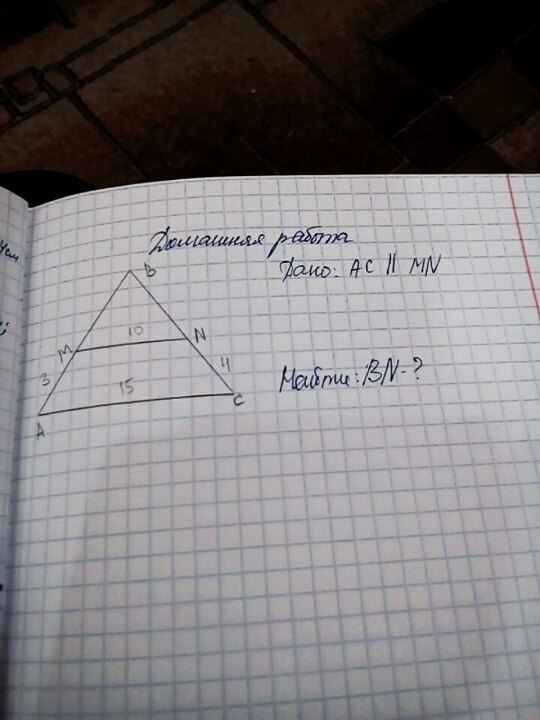 Домашняя работа
B
Дано: AC || MN
10
M
N
3
4
Найти: BN-?
15
C
A